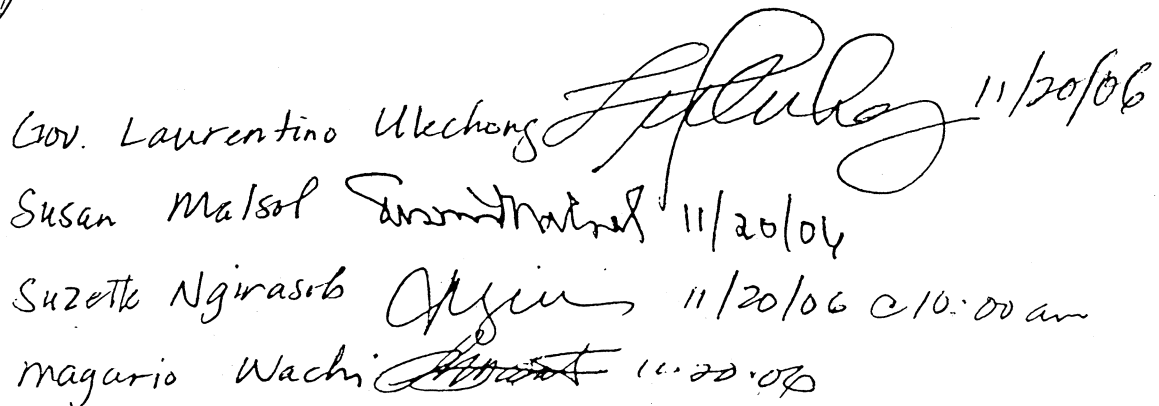 Gov. Laurentino Ulechong 11/20/06
Susan Malsol 11/20/06
Suzette Ngirasob 11/20/06 @ 10:00 am
Magario Wachi 11.20.06